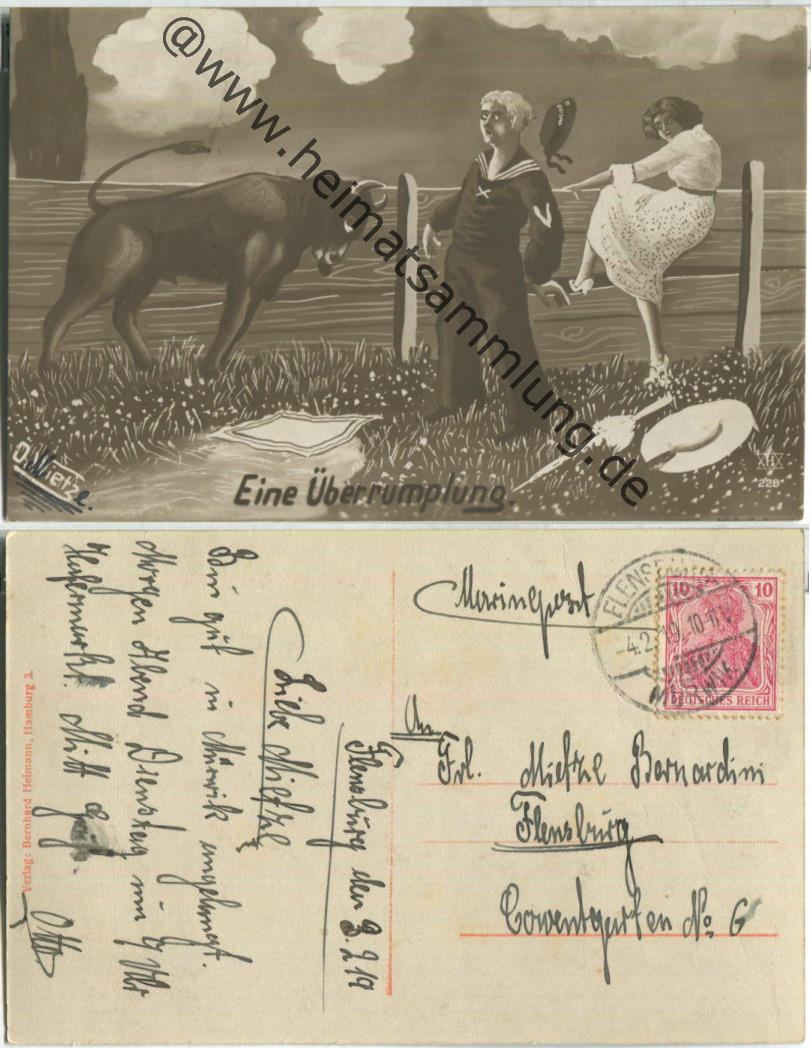 @www.heimatsammlung.de
O. Wietze.
Eine Überrumplung.
228
Flensburg den 3. 2 19
Liebe Mietzl
Bin gut in Mürwik angelangt.
Morgen Abend Dienstag um 7 Uhr
Hafermarkt. Mitt
Otto
Verlag: Bernhard Heimann, Hamburg 3.
Marinepost
FLENS
-4.2.19. 10-11V
10
10
DEUTSCHES REICH
An
Frl. Mietzl Bernardini
Flensburg
No 6